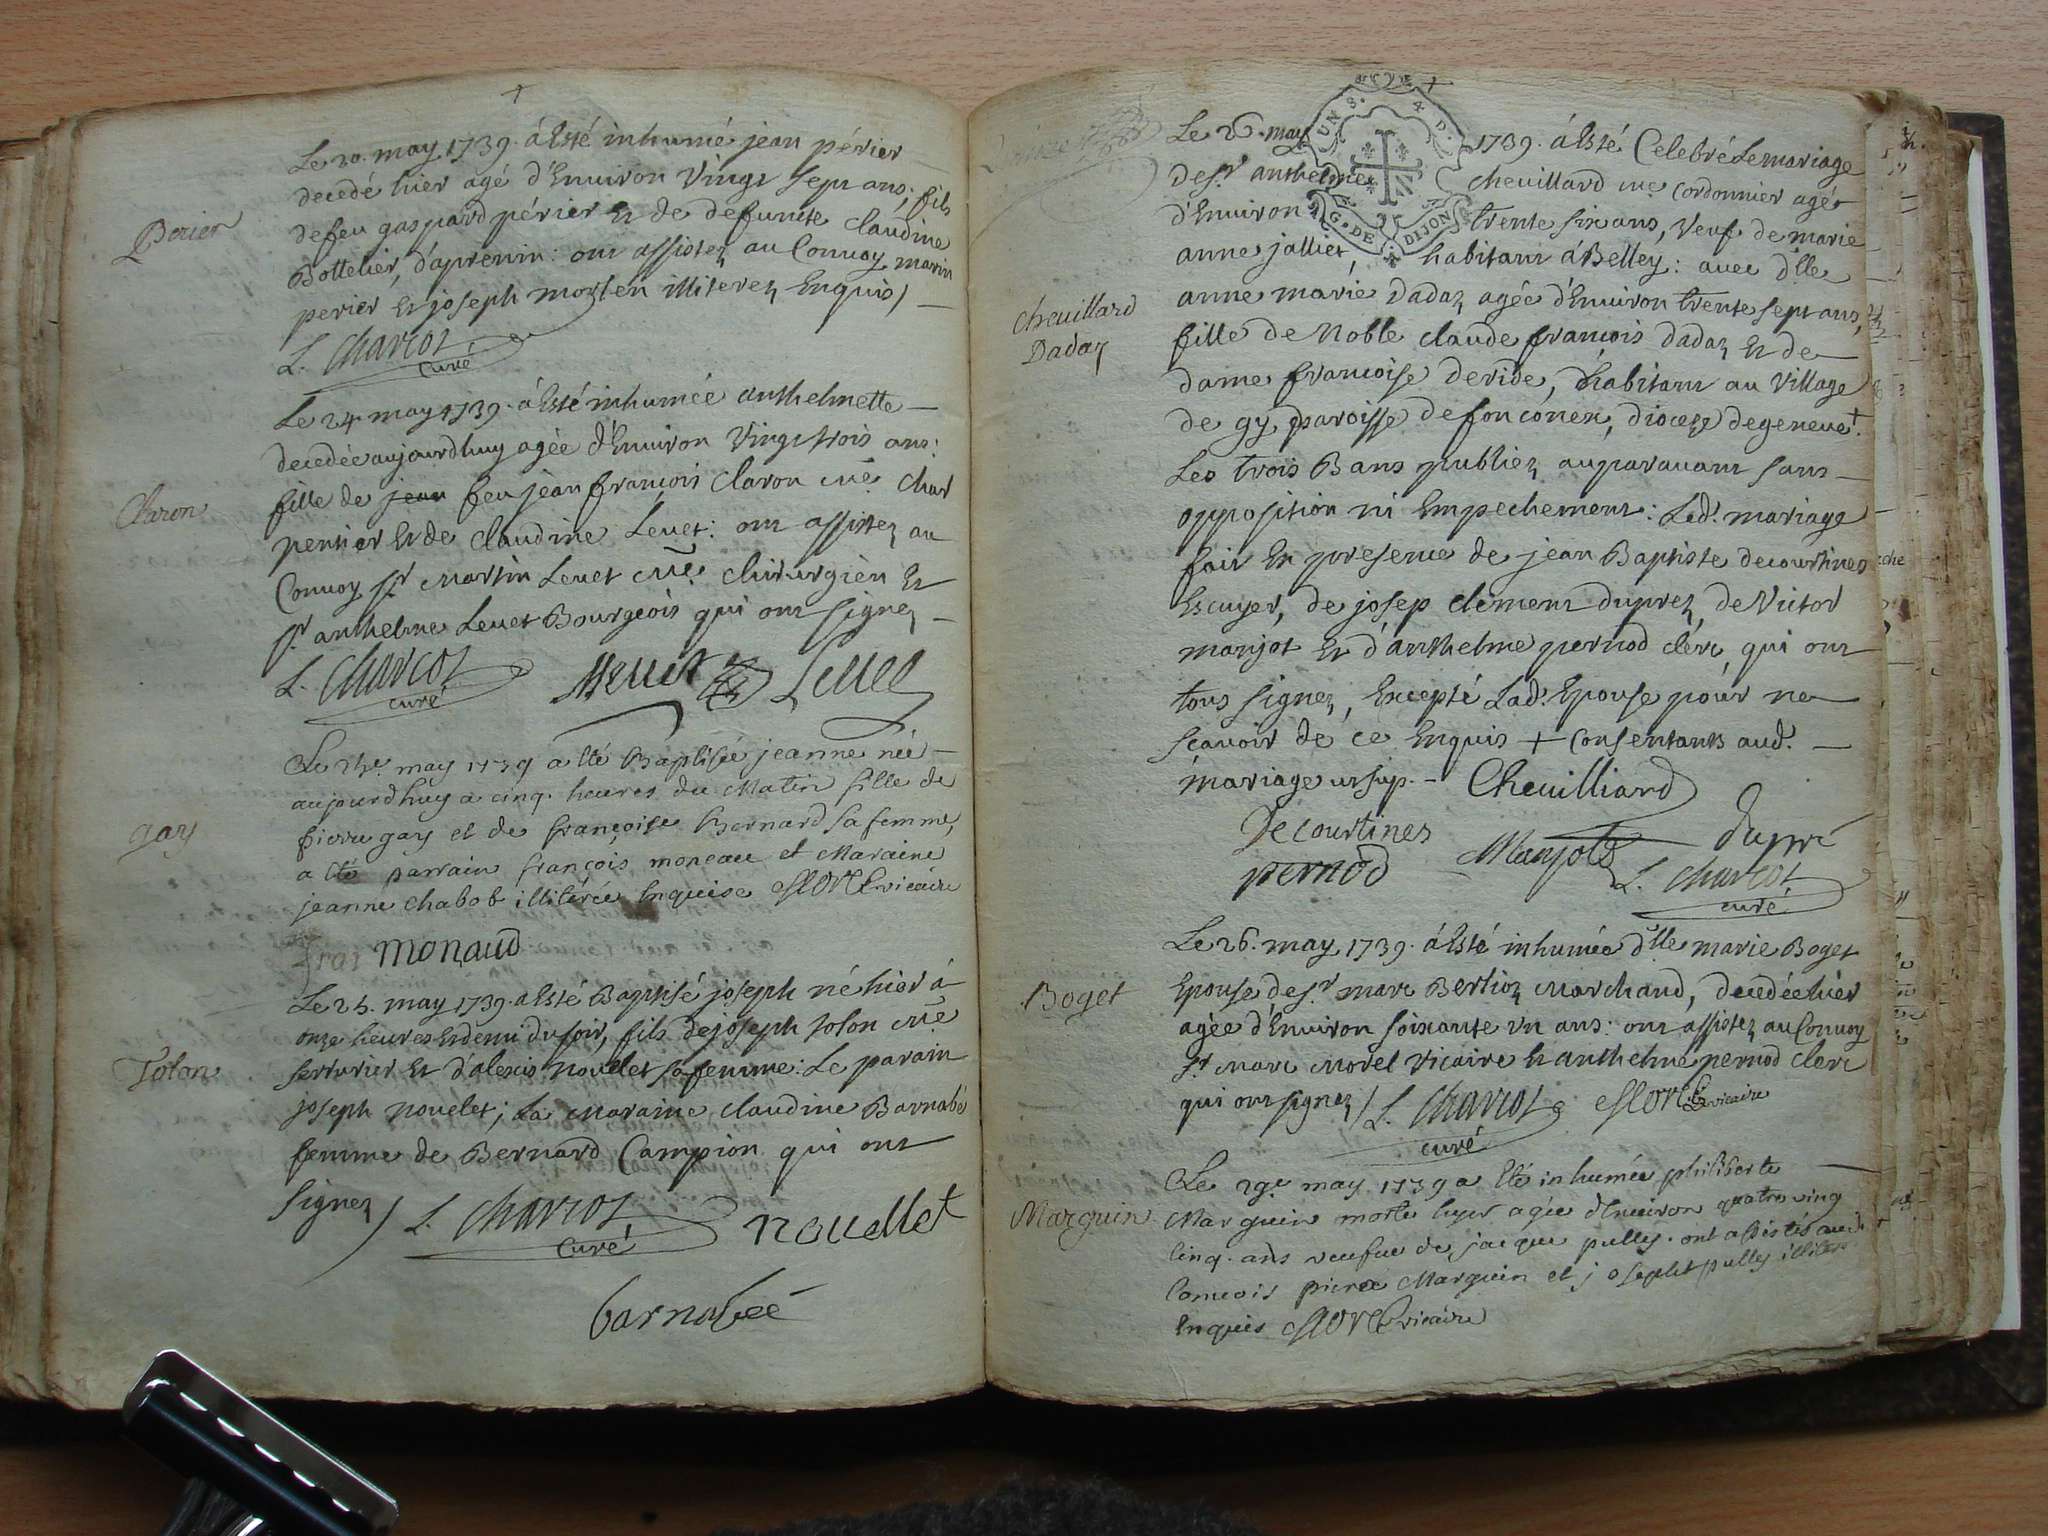 Perier
Le 20. may 1739. á Esté inhumé jean périer
decedé hier agé d'Environ Vingt sept ans; fils
de feu gaspard périer Et de defuncte claudine
Bottelier, d'aprenin: ont assistez au Convoy marin
perier Et joseph morten illiterez Enquis /
L. Charcot
curé
Claron
Le 24. may 1739. á Esté inhumée anthelmette
decedée aujourdhuy agée d'Environ Vingt trois ans:
fille de jean feu jean françois Claron me char
pentier Et de Claudine Levet: ont assistez au
Convoy sr Martin Levet me chirurgien Et
sr anthelme Levet Bourgeois qui ont signez
L. Charcot
curé
MLevet
Levet
gay
Le 24e. may 1739 a été Baptisée jeanne née
aujourdhuy a cinq. heures du Matin fille de
pierre gay et de françoise Bernard sa femme,
a été parrain françois moneau et Maraine
jeanne Chabob illitérée Enquise Morel vicaire
monaud
Tolon
Le 25. may 1739. a Esté Baptisé joseph né hier á
onze heures Et demi du soir, fils de joseph tolon me
serrurier Et d'alexis nouelet sa femme: Le parain
joseph nouelet; La Maraine claudine Barnabé
femme de Bernard Campion qui ont
signez / L. Charcot
curé
nouellet
barnabée
Le 26. may 1739. á Esté Celebré Le mariage
UN S. 4 D.
G. DE DIJON
de sr anthelme chevillard me Cordonnier agé
d'Environ trente six ans, Veuf de marie
anne jallier, habitant á Belley: avec dlle
Chevillard
Dadaz
anne marie Dadaz agée d'Environ trente sept ans,
fille de Noble claude françois dadaz Et de
dame françoise deride, habitant au Village
de gy paroisse de fonconex, diocese de geneve +.
Les trois Bans publiez auparavant sans
opposition ni Empechement: Led. mariage
fait En presence de jean Baptiste decourtines
Escuyer, de josep clement duprez, de Victor
manjot Et d'anthelme pernod clerc, qui ont
tous signez, Excepté Lad. Epouse pour ne
scavoir de ce Enquis + Consentants aud.
mariage ut sup. Chevilliard
Decourtines
dupré
pernod
Manjot
L. Charcot
curé
Boget
Le 26. may 1739. á Esté inhumée dlle marie Boget
Epouse de sr marc Bertioz Marchand, decedée hier
agée d'Environ soixante un ans: ont assistez au Convoy
sr Marc Morel vicaire Et anthelme pernod clerc
qui ont signez / L. Charcot Morel vicaire
curé
Marguin
Le 29e. may 1739 a Eté inhumée philiberte
Marguin morte hyer agée d'Environ quatre ving
Cinq. ans veufue de jacque pulley. ont assistés aud.
Convois pierre Marguin et joseph pulley illiteré
Enquis Morel vicaire